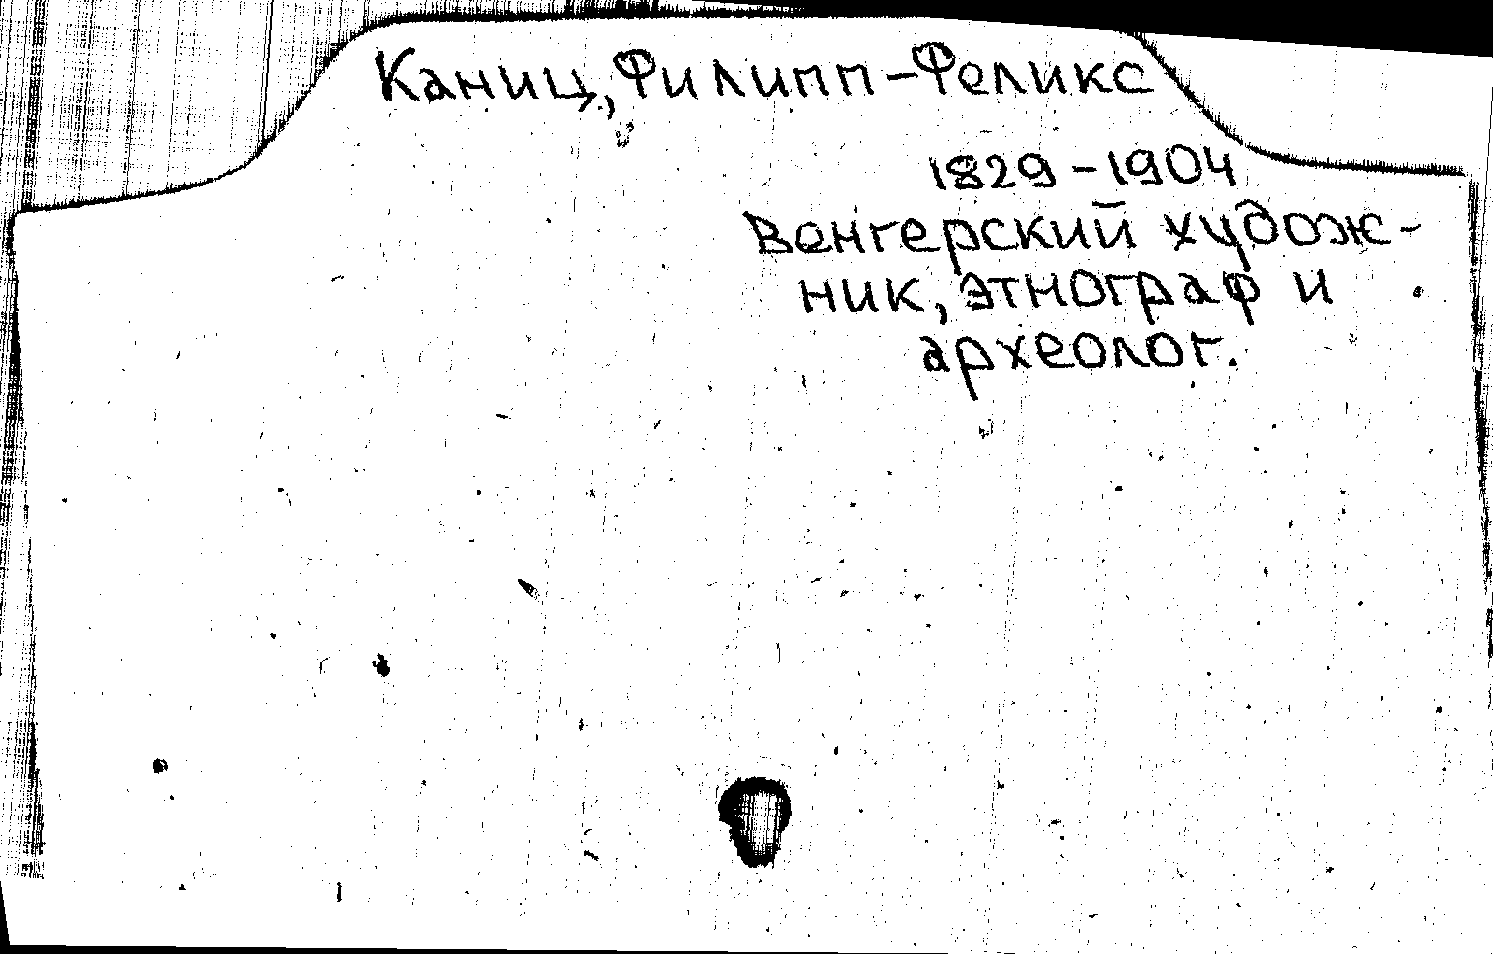 Каниц, Филипп-Феликс
1829-1904
Венгерский худож-
ник, этнограф и
археолог.